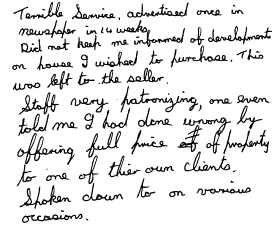 Terrible Service, advertised once in
newspaper in 14 weeks,
Did not keep me informed of developments
on house I wished to purchase. This
was left to the seller.
Staff very patronizing, one even
told me I had done wrong by
offering full price of property
to one of thier own clients.
Spoken down to on various
occasions.